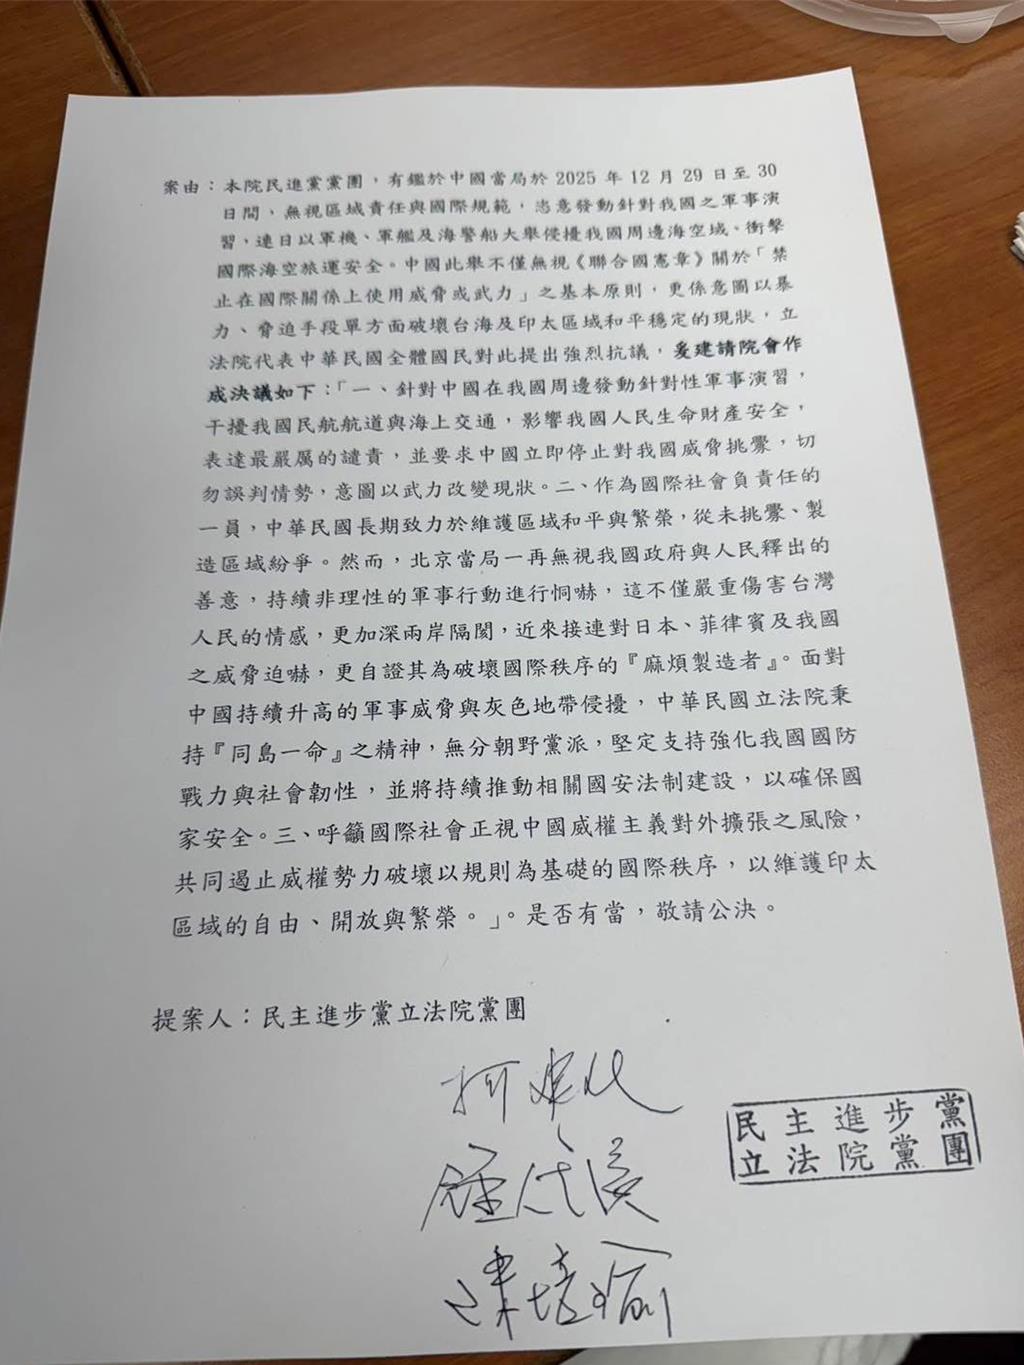 案由：本院民進黨黨團，有鑑於中國當局於 2025 年 12 月 29 日至 30
日間，無視區域責任與國際規範，恣意發動針對我國之軍事演
習，連日以軍機、軍艦及海警船大舉侵擾我國周邊海空域、衝擊
國際海空旅運安全。中國此舉不僅無視《聯合國憲章》關於「禁
止在國際關係上使用威脅或武力」之基本原則，更係意圖以暴
力、脅迫手段單方面破壞台海及印太區域和平穩定的現狀，立
法院代表中華民國全體國民對此提出強烈抗議，爰建請院會作
成決議如下：「一、針對中國在我國周邊發動針對性軍事演習，
干擾我國民航航道與海上交通，影響我國人民生命財產安全，
表達最嚴厲的譴責，並要求中國立即停止對我國威脅挑釁，切
勿誤判情勢，意圖以武力改變現狀。二、作為國際社會負責任的
一員，中華民國長期致力於維護區域和平與繁榮，從未挑釁、製
造區域紛爭。然而，北京當局一再無視我國政府與人民釋出的
善意，持續非理性的軍事行動進行恫嚇，這不僅嚴重傷害台灣
人民的情感，更加深兩岸隔閡，近來接連對日本、菲律賓及我國
之威脅迫嚇，更自證其為破壞國際秩序的『麻煩製造者』。面對
中國持續升高的軍事威脅與灰色地帶侵擾，中華民國立法院秉
持『同島一命』之精神，無分朝野黨派，堅定支持強化我國國防
戰力與社會韌性，並將持續推動相關國安法制建設，以確保國
家安全。三、呼籲國際社會正視中國威權主義對外擴張之風險，
共同遏止威權勢力破壞以規則為基礎的國際秩序，以維護印太
區域的自由、開放與繁榮。」。是否有當，敬請公決。
提案人：民主進步黨立法院黨團
民主進步黨
立法院黨團